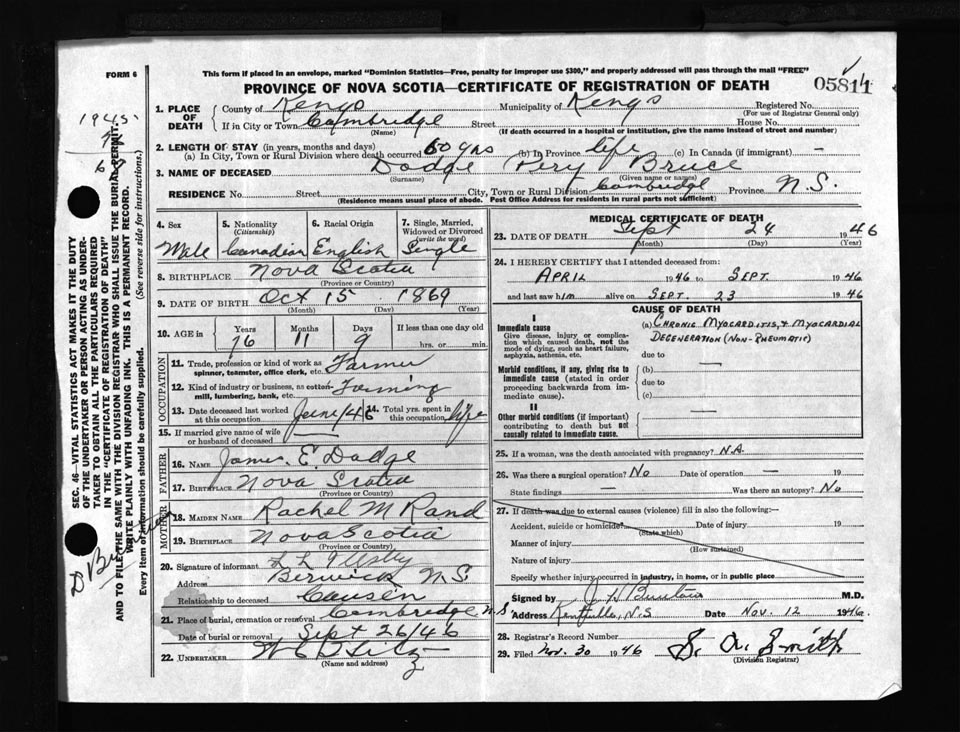 FORM 6
This form if placed in an envelope, marked "Dominion Statistics—Free, penalty for improper use $300," and properly addressed will pass through the mail "FREE"
PROVINCE OF NOVA SCOTIA—CERTIFICATE OF REGISTRATION OF DEATH
05811
1. PLACE OF DEATH
County of Kings Municipality of Kings Registered No.
(For use of Registrar General only)
If in City or Town Cambridge Street House No.
(Name) (If death occurred in a hospital or institution, give the name instead of street and number)
2. LENGTH OF STAY (in years, months and days)
(a) In City, Town or Rural Division where death occurred 60 yrs (b) In Province life (c) In Canada (if immigrant) —
3. NAME OF DECEASED Dodge Pery Bruce
(Surname) (Given name or names)
RESIDENCE No. Street City, Town or Rural Division Cambridge Province N.S.
(Residence means usual place of abode. Post Office Address for residents in rural parts not sufficient)
4. Sex
Male
5. Nationality (Citizenship)
Canadian
6. Racial Origin
English
7. Single, Married, Widowed or Divorced (write the word)
Single
8. BIRTHPLACE Nova Scotia
(Province or Country)
9. DATE OF BIRTH Oct 15 1869
(Month) (Day) (Year)
10. AGE in
Years Months Days If less than one day old
76 11 9 hrs. or min.
OCCUPATION
11. Trade, profession or kind of work as spinner, teamster, office clerk, etc. Farmer
12. Kind of industry or business, as cotton mill, lumbering, bank, etc. Farming
13. Date deceased last worked at this occupation June/46
14. Total yrs. spent in this occupation life
15. If married give name of wife or husband of deceased —
FATHER
16. NAME James E. Dodge
17. BIRTHPLACE Nova Scotia
(Province or Country)
MOTHER
18. MAIDEN NAME Rachel M Rand
19. BIRTHPLACE Nova Scotia
(Province or Country)
20. Signature of informant
Address Berwick N.S
Relationship to deceased Causen
21. Place of burial, cremation or removal Cambridge N.S.
Date of burial or removal Sept 26/46
22. UNDERTAKER
(Name and address)
MEDICAL CERTIFICATE OF DEATH
23. DATE OF DEATH Sept 24 1946
(Month) (Day) (Year)
24. I HEREBY CERTIFY that I attended deceased from:
APRIL 1946 to SEPT. 1946
and last saw him alive on SEPT. 23 1946
CAUSE OF DEATH
I
Immediate cause
Give disease, injury or complication which caused death, not the mode of dying, such as heart failure, asphyxia, asthenia, etc.
(a) CHRONIC MYOCARDITIS, & MYOCARDIAL
DEGENERATION (NON-RHEUMATIC)
due to
Morbid conditions, if any, giving rise to immediate cause (stated in order proceeding backwards from immediate cause).
(b) —
due to
(c)
II
Other morbid conditions (if important) contributing to death but not causally related to immediate cause.
25. If a woman, was the death associated with pregnancy? N.A.
26. Was there a surgical operation? No Date of operation — 19
State findings — Was there an autopsy? No
27. If death was due to external causes (violence) fill in also the following:—
Accident, suicide or homicide? Date of injury 19
(State which)
Manner of injury
(How sustained)
Nature of injury
Specify whether injury occurred in industry, in home, or in public place
Signed by M.D.
Address Kentville, N.S Date Nov. 12 1946.
28. Registrar's Record Number
29. Filed Nov. 30 1946 S. A. Smith
(Division Registrar)
1945
SEC. 46—VITAL STATISTICS ACT MAKES IT THE DUTY
OF THE UNDERTAKER OR PERSON ACTING AS UNDER-
TAKER TO OBTAIN ALL THE PARTICULARS REQUIRED
IN THE "CERTIFICATE OF REGISTRATION OF DEATH"
AND TO FILE THE SAME WITH THE DIVISION REGISTRAR WHO SHALL ISSUE THE BURIAL PERMIT.
WRITE PLAINLY WITH UNFADING INK. THIS IS A PERMANENT RECORD.
Every item of information should be carefully supplied. (See reverse side for instructions.)